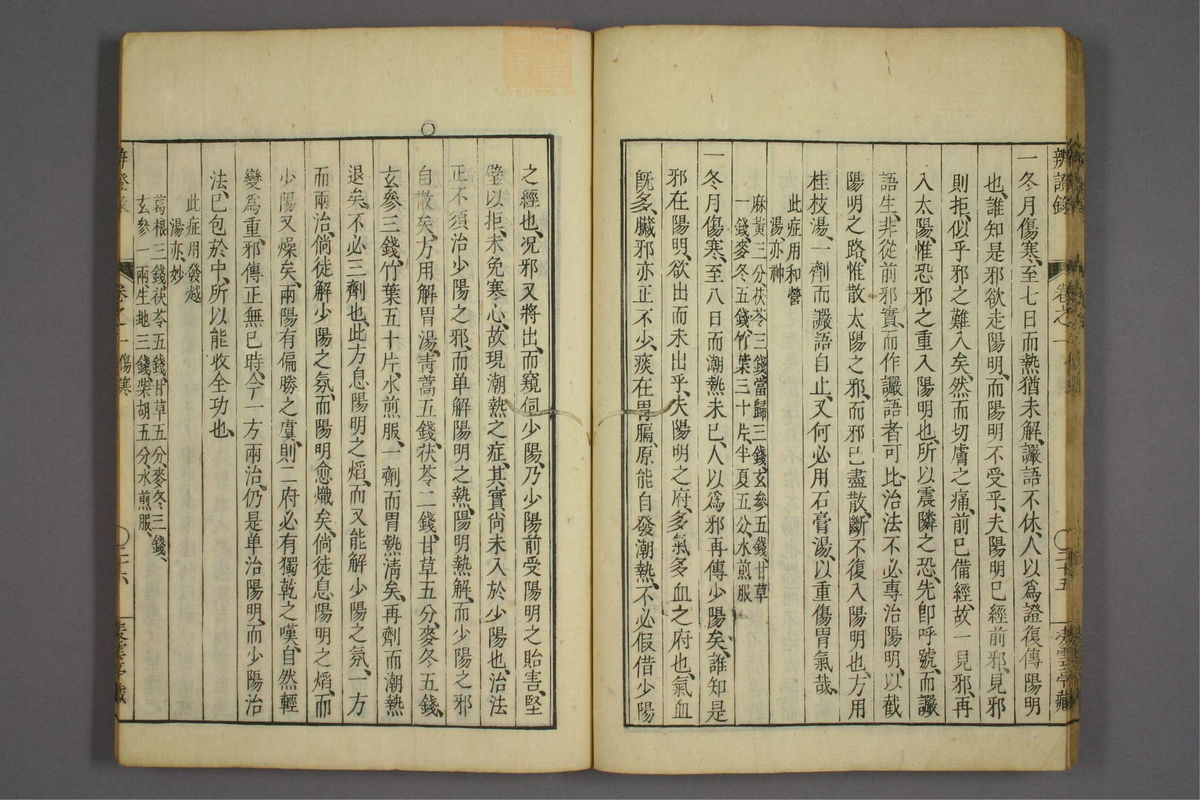 辨證錄 卷之一 三十五
一冬月傷寒、至七日而熱猶未解、讝語不休、人以爲證復傳陽明
也、誰知是邪欲走陽明、而陽明不受乎、夫陽明已經前邪、見邪
則拒、似乎邪之難入矣、然而切膚之痛、前已備經、故一見邪、再
入太陽、惟恐邪之重入陽明也、所以震隣之恐、先卽呼號、而讝
語生、非從前邪實、而作讝語者可比、治法不必專治陽明、以截
陽明之路、惟散太陽之邪、而邪已盡散、斷不復入陽明也、方用
桂枝湯、一劑而讝語自止、又何必用石膏湯、以重傷胃氣哉、
此症用和營
湯亦神
麻黃三分茯苓三錢當歸三錢玄參五錢甘草
一錢、麥冬五錢竹葉三十片、半夏五分、水煎服
一冬月傷寒、至八日而潮熱未已、人以爲邪再傳少陽矣、誰知是
邪在陽明、欲出而未出乎、夫陽明之府、多氣多血之府也、氣血
旣多、臟邪亦正不少、痰在胃膈、原能自發潮熱、不必假借少陽
之經也、況邪又將出、而窺伺少陽、乃少陽前受陽明之貽害、堅
壁以拒、未免寒心、故現潮熱之症、其實尙未入於少陽也、治法
正不須治少陽之邪、而单解陽明之熱、陽明熱解、而少陽之邪
自散矣、方用解胃湯、靑蒿五錢、茯苓二錢、甘草五分、麥冬五錢、
玄參三錢、竹葉五十片、水煎服、一劑而胃熱淸矣、再劑而潮熱
退矣、不必三劑也、此方息陽明之熖、而又能解少陽之氛、一方
而兩治、倘徒解少陽之氛、而陽明愈熾矣、倘徒息陽明之熖、而
少陽又燥矣、兩陽有偏勝之虞、則二府必有獨乾之嘆、自然輕
變爲重、邪傳正無已時、今一方兩治、仍是单治陽明、而少陽治
法、已包於中、所以能收全功也、
此症用發越
湯亦、妙
葛根三錢茯苓五錢、甘草五分、麥冬三錢、
玄參一兩生地三錢柴胡五分水煎服、
卷之一傷寒 三十六